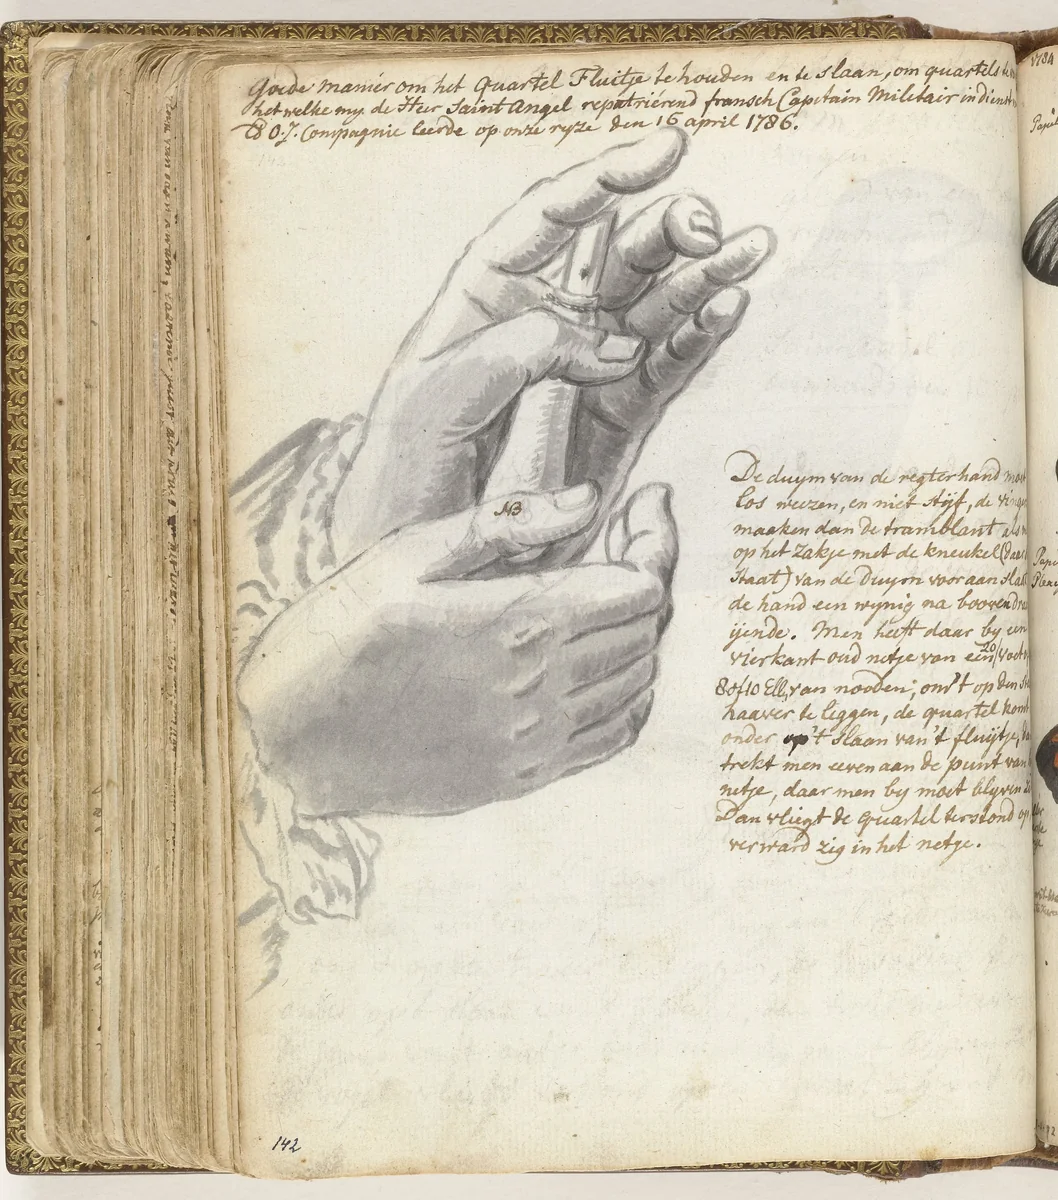 Goede manier om het Quartel Fluitje te houden en te slaan, om quartels te
het welke my de Heer Saint Angel repatriérend fransch Capitain Militair in dienst
C8 O:J: Compagnie leerde op onze ryze den 16 april 1786.
NB
De duym van de regterhand moet
los weezen, en niet stijf, de vinger
maaken dan de tramblant als
op het zakje met de kneukel (daar
staat) van de Duym vooraan slaat
de hand een wynig na booven dra
ijende. Men heeft daar by een
vierkant oud netje van een 20 voet
8 of 10 Ell, van nooden; om 't op den
haaver te liggen, de quartel komt
onder op 't slaan van 't fluijtje,
trekt men eeven aan de punt van
netje, daar men by moet blyven
Dan vliegt de quartel terstond op
verward zig in het netje.
142
1784